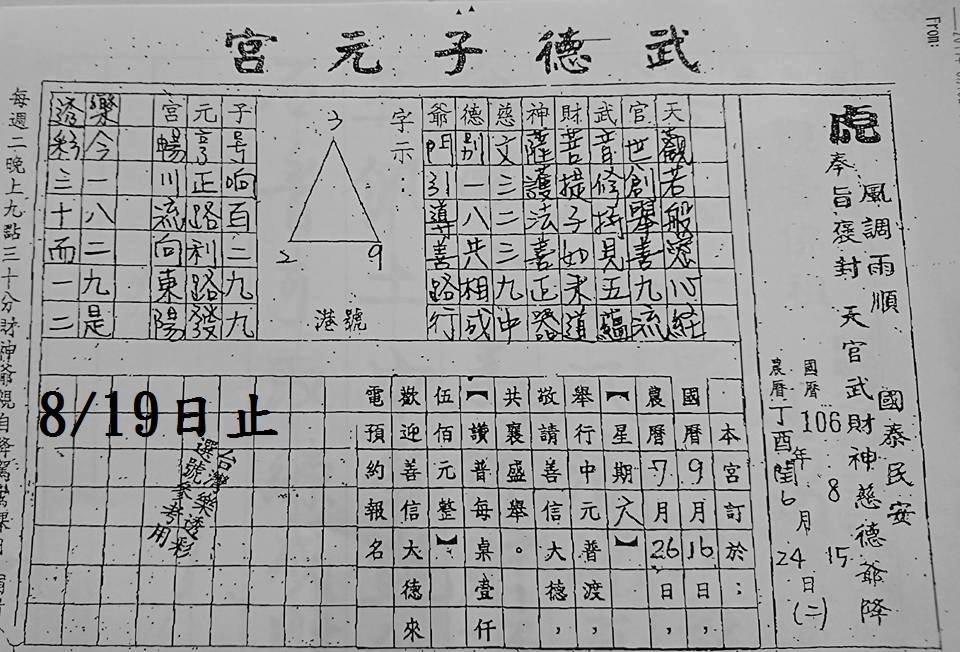 From:
武德子元宮
虎
風調雨順
國泰民安
奉旨褒封 天官武財神慈德爺降
國曆 106年8月15日(二)
農曆丁酉閏6月24日
天觀若般心経
官世創舉善九流
武音修持見五蘊
財菩提子如来道
神薩護法善正器
慈文三二三九中
德別一八共相成
爺門引導善路行
字示：
3
2 9
港號
子号响百二九九
元亨正路利路發
宮暢川流向東陽
樂今一八二九是
透彩三十而一二
本宮訂於：
國曆9月16日，
農曆7月26日
【星期六】
舉行中元普渡，
敬請善信大德
共襄盛舉。
【讚普每桌壹仟
伍佰元整】
歡迎善信大德來
電預約報名
8/19日止
台灣樂透彩
選號參考用
每週二晚上九點三十分財神爺親自降駕